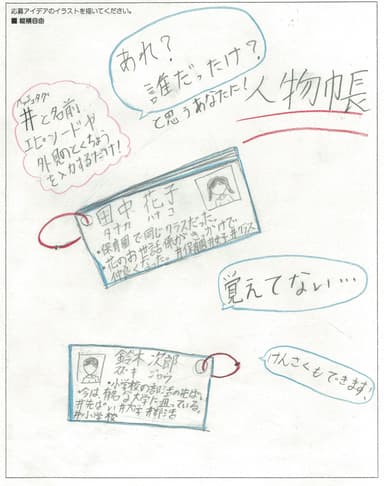 応募アイデアのイラストを描いてください。
■ 縦横自由
あれ?
誰だったけ?
と思うあなたに!
人物帳
ハッシュタグ
#と名前
エピソードや
外見のとくちょう
を入力するだけ!
田中 花子
タナカ ハナコ
・保育園で同じクラスだった。
・花のお世話係がきっかけで
仲良くなった。#保育園#女子#クラス
覚えてない…
鈴木 次郎
スズキ ジロウ
・小学校の部活の先ぱい。
・今は有名な大学に通っている。
#先ぱい #大学 #部活
#小学校
けんさくもできます!